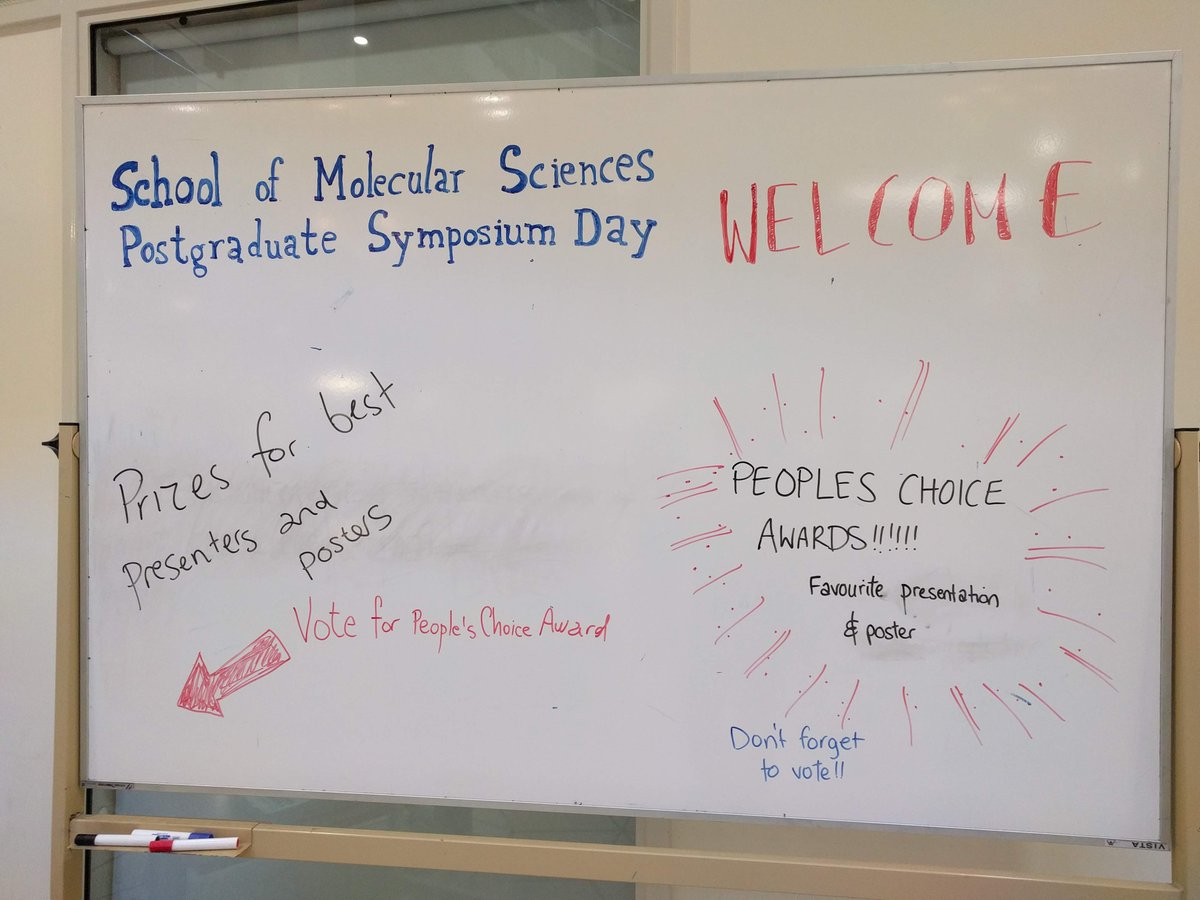 School of Molecular Sciences
Postgraduate Symposium Day
WELCOME
Prizes for best
presenters and
posters
Vote for People's Choice Award
PEOPLES CHOICE
AWARDS!!!!!!
Favourite presentation
& poster
Don't forget
to vote!!
VISTA